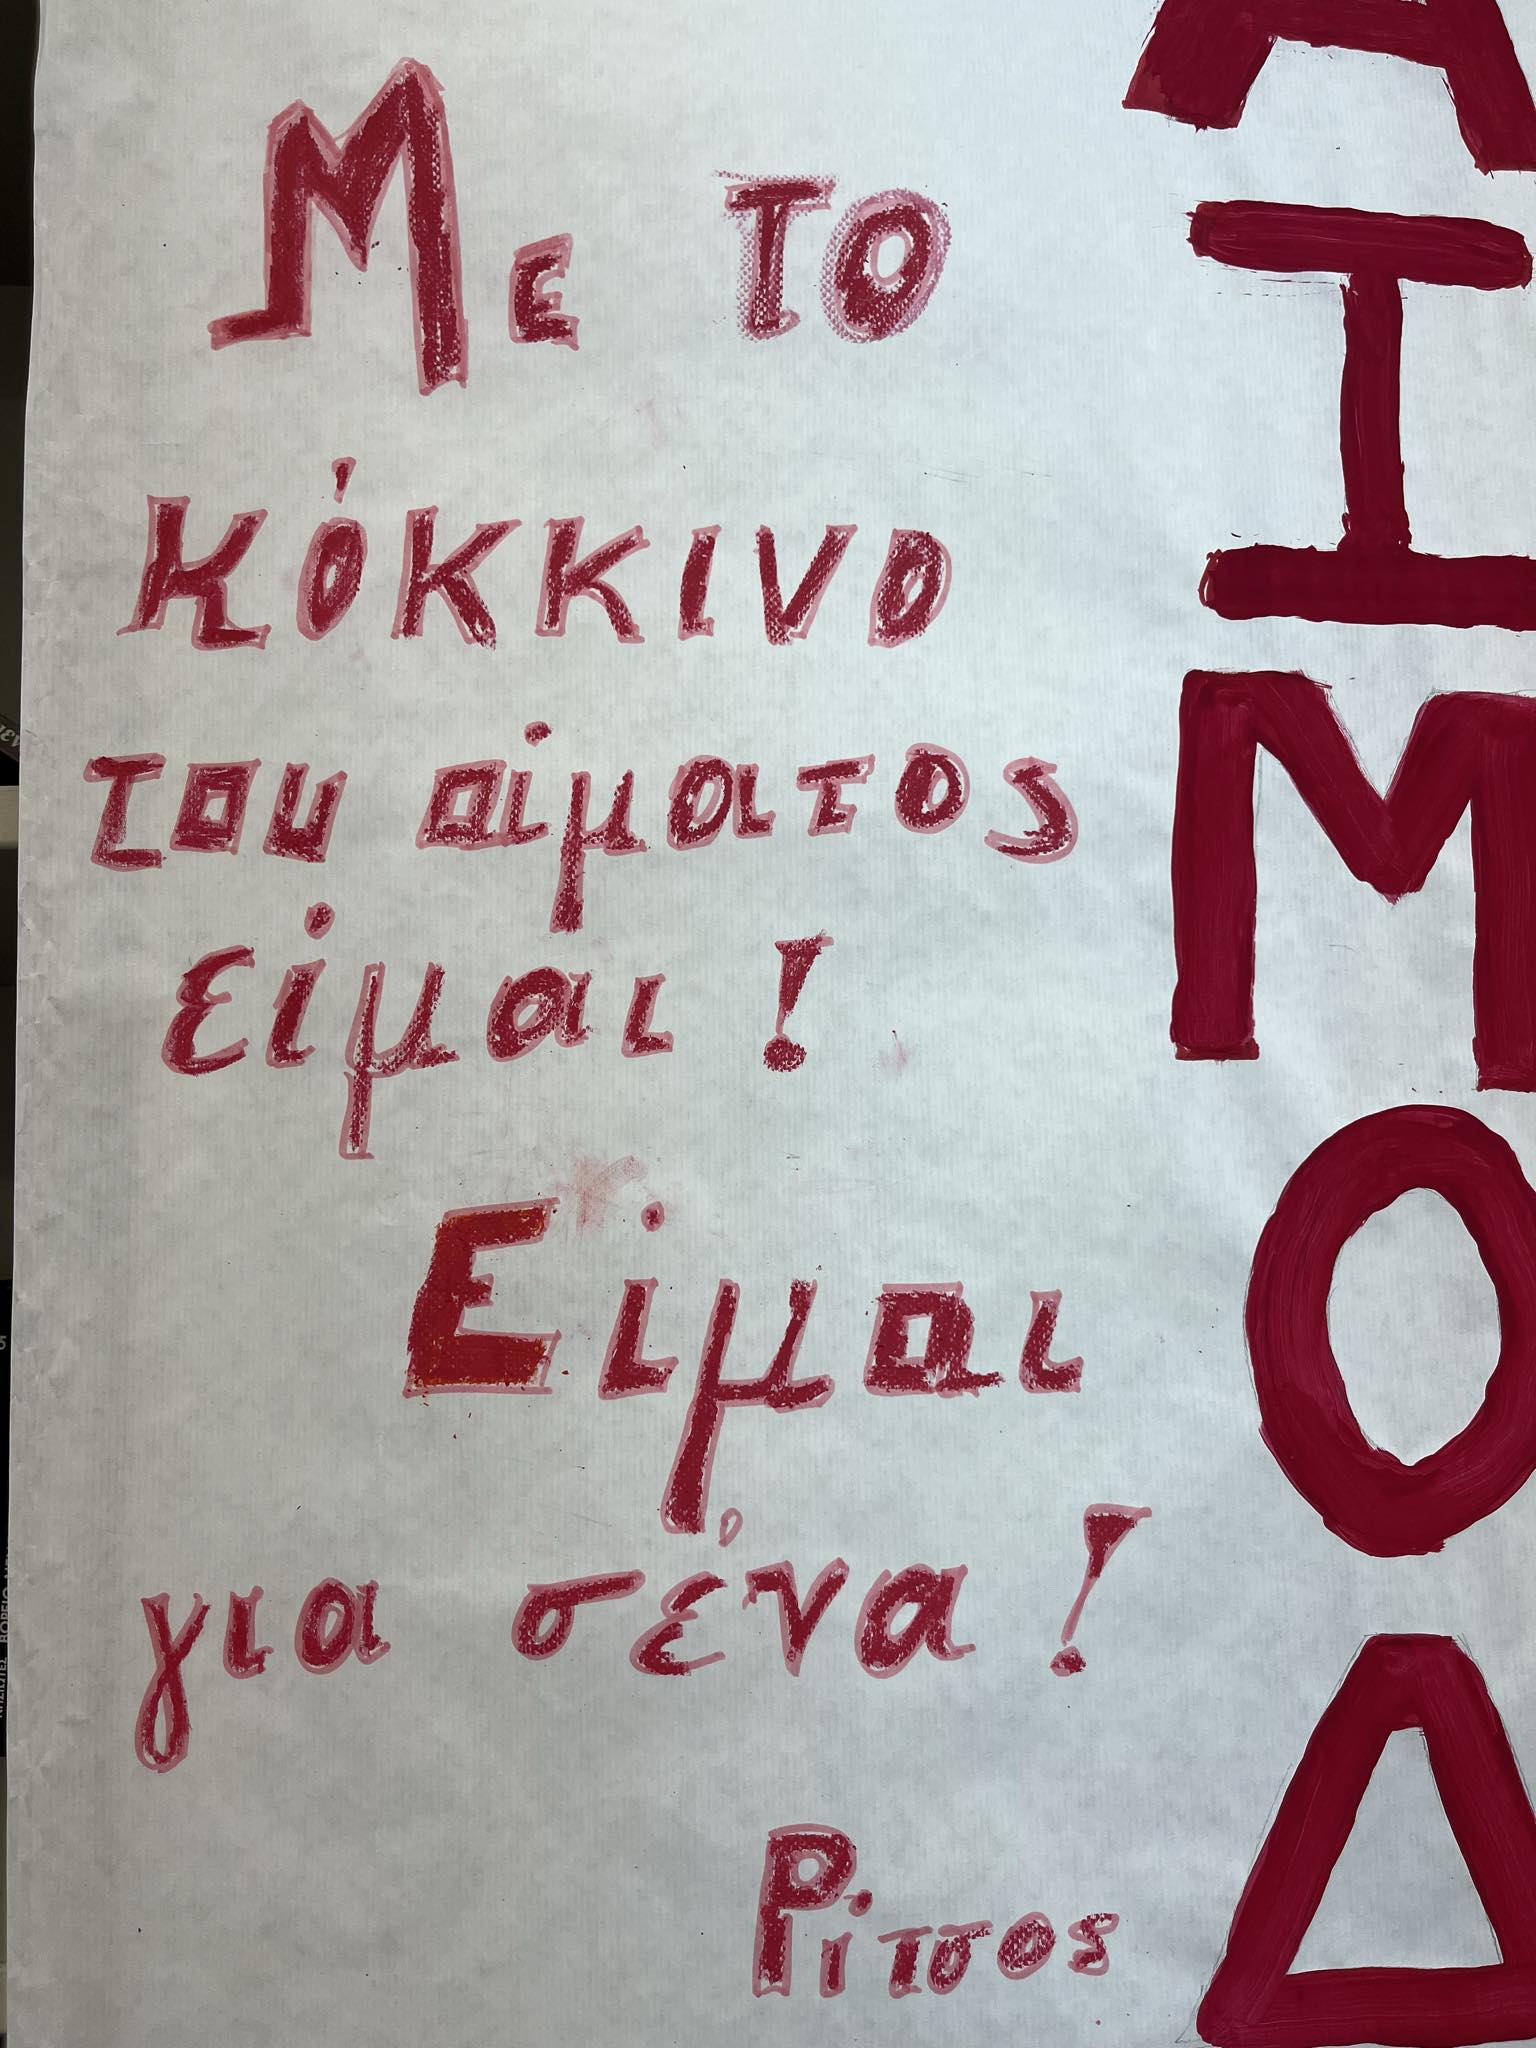 Με το
κόκκινο
του αίματος
είμαι!
Είμαι
για σένα!
Ρίτσος
ΑΙΜΟΔ